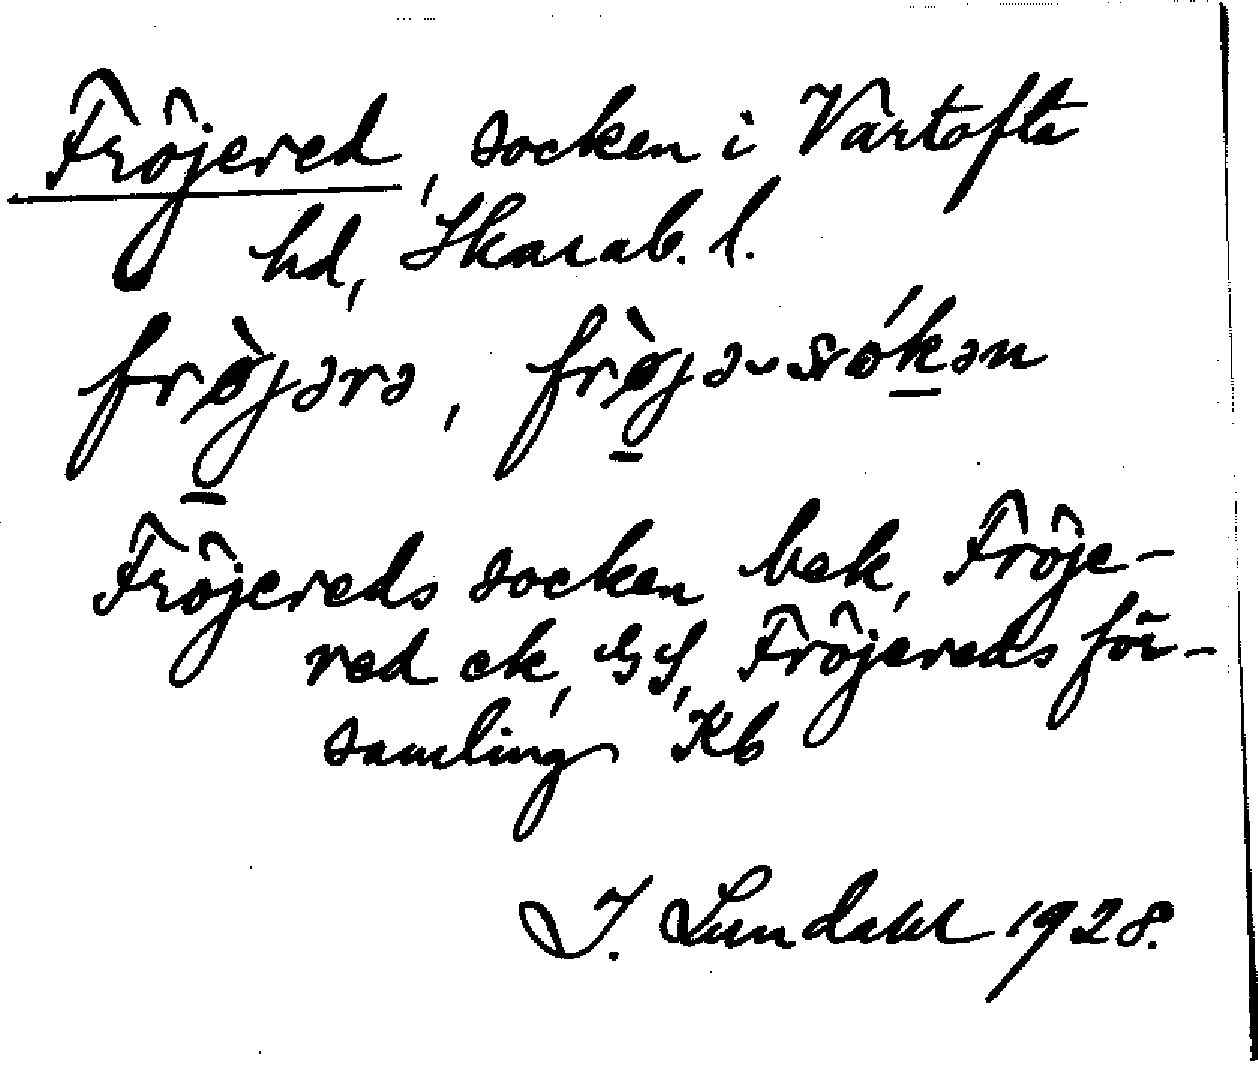 Fröjered, socken i Vartofta
hd, Skarab. l.
frø̀jərə, frø̀jə-sókən
Fröjereds socken bek, Fröje-
red ek, GS, Fröjereds för-
samling Kb
I. Lundahl 1928.